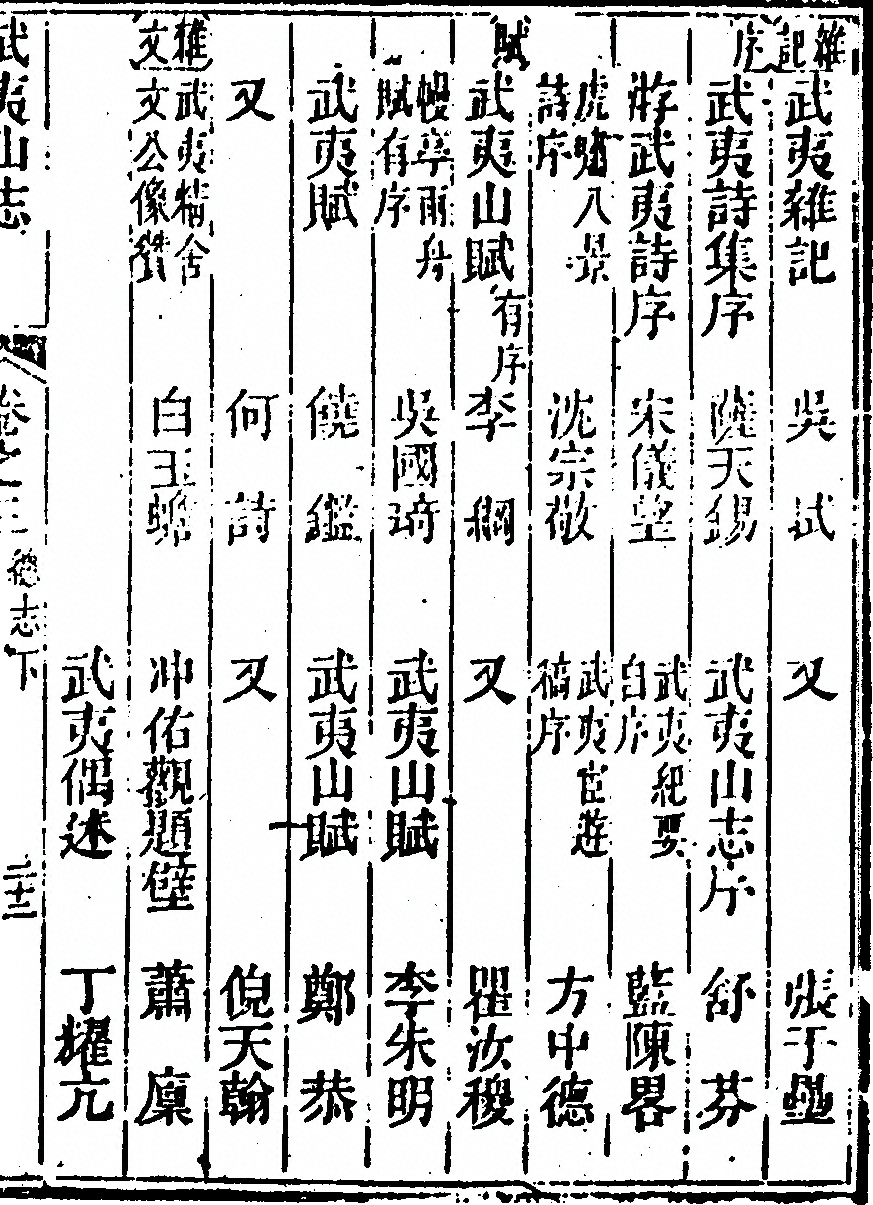 雜記 武夷雜記 吳拭 又 張于壘
序 武夷詩集序 薩天錫 武夷山志序 舒芬
游武夷詩序 宋儀望 武夷紀要自序 藍陳畧
虎嘯八景詩序 沈宗敬 武夷宦遊稿序 方中德
賦 武夷山賦有序 李綱 又 瞿汝稷
幔亭雨舟賦有序 吳國琦 武夷山賦 李朱明
武夷賦 饒鑑 武夷山賦 鄭恭
又 何詩 又 倪天翰
雜文 武夷精舍文公像贊 白玉蟾 冲佑觀題壁 蕭廩
武夷偶述 丁耀亢
武夷山志 卷之 總志下 二十三